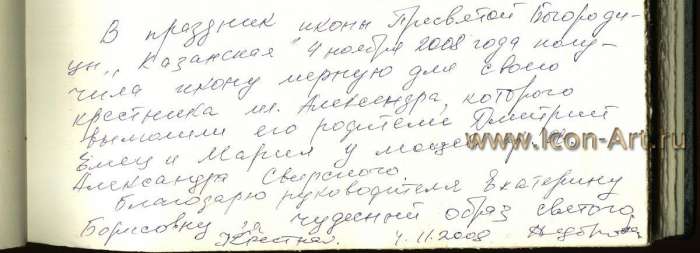 В праздник иконы Пресвятой Богороди-
цы „Казанская" 4 ноября 2008 года полу-
чила икону мерную для своего
крестника мл. Александра, которого
вымолили его родители Дмитрий
и Мария у мощей
Александра Свирского.
Благодарю руководителя Екатерину
Борисовну за чудесный образ святого
Крестная. 4.11.2008
www.Icon-Art.ru